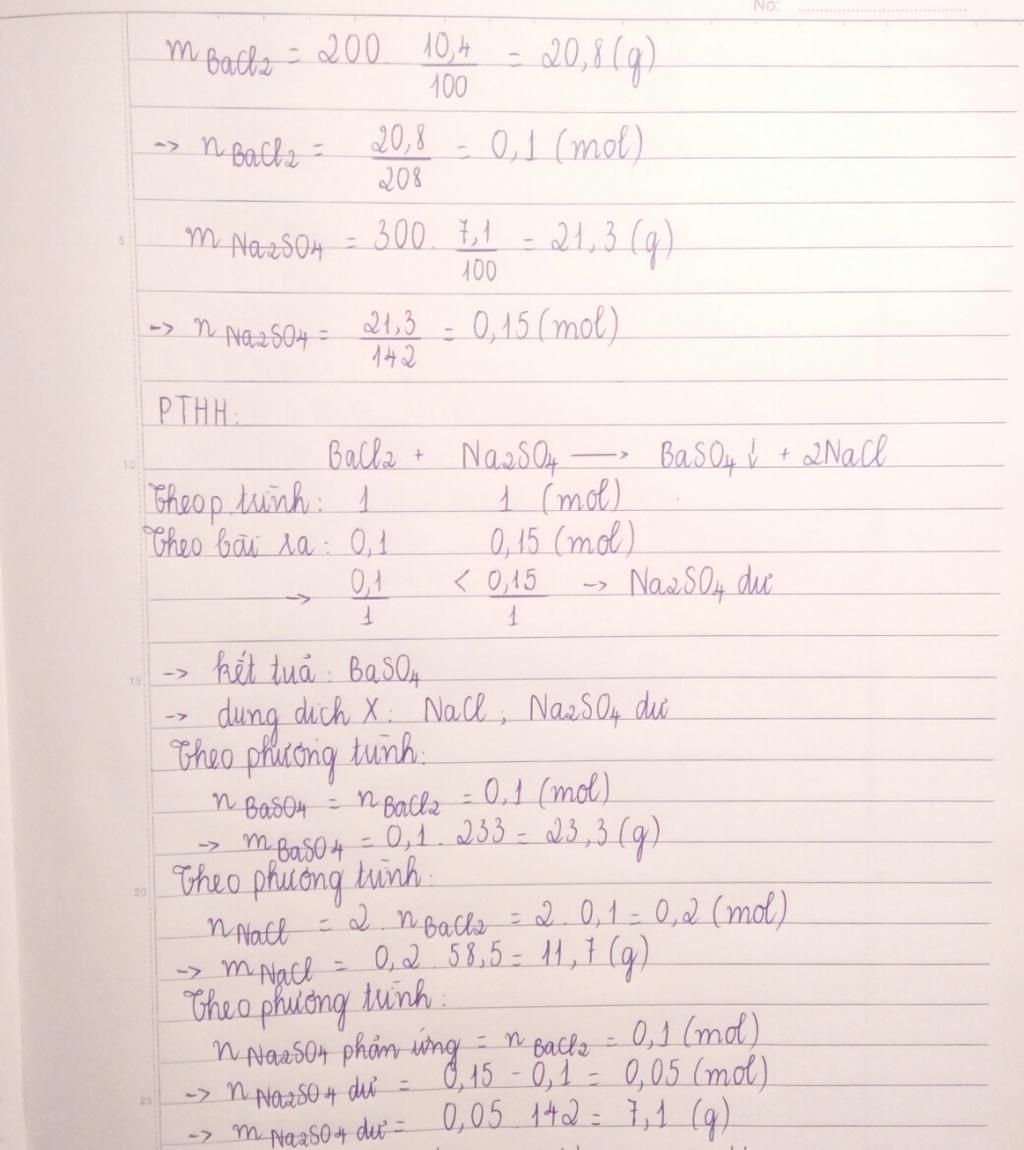 No:
m BaCl2 = 200. 10,4/100 = 20,8 (g)
-> n BaCl2 = 20,8/208 = 0,1 (mol)
m Na2SO4 = 300. 7,1/100 = 21,3 (g)
-> n Na2SO4 = 21,3/142 = 0,15 (mol)
PTHH:
BaCl2 + Na2SO4 —> BaSO4↓ + 2NaCl
Theo p. trình: 1 1 (mol)
Theo bài ra: 0,1 0,15 (mol)
-> 0,1/1 < 0,15/1 -> Na2SO4 dư
-> kết tuả: BaSO4
-> dung dịch X: NaCl; Na2SO4 dư
Theo phương trình:
n BaSO4 = n BaCl2 = 0,1 (mol)
-> m BaSO4 = 0,1. 233 = 23,3 (g)
Theo phương trình:
n NaCl = 2. n BaCl2 = 2. 0,1 = 0,2 (mol)
-> m NaCl = 0,2. 58,5 = 11,7 (g)
Theo phương trình:
n Na2SO4 phản ứng = n BaCl2 = 0,1 (mol)
-> n Na2SO4 dư = 0,15 - 0,1 = 0,05 (mol)
-> m Na2SO4 dư = 0,05. 142 = 7,1 (g)